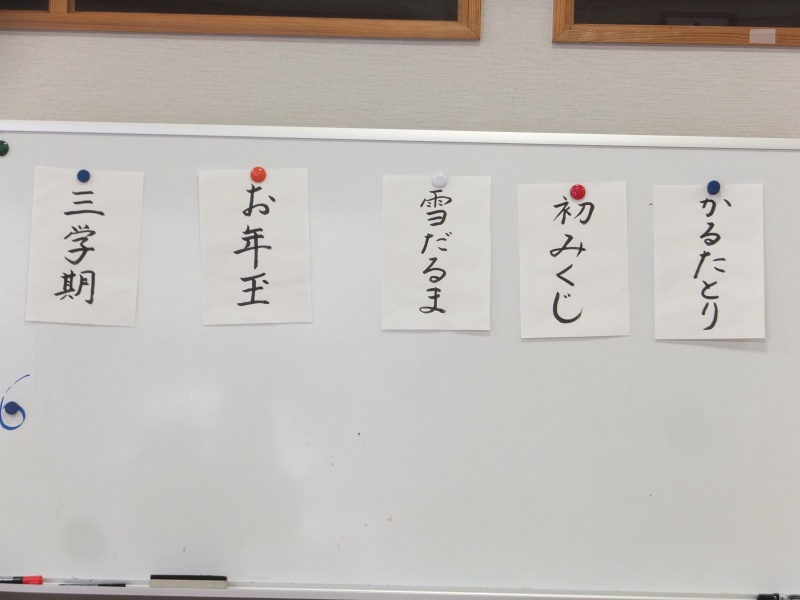 かるたとり
初みくじ
雪だるま
お年玉
三学期
6